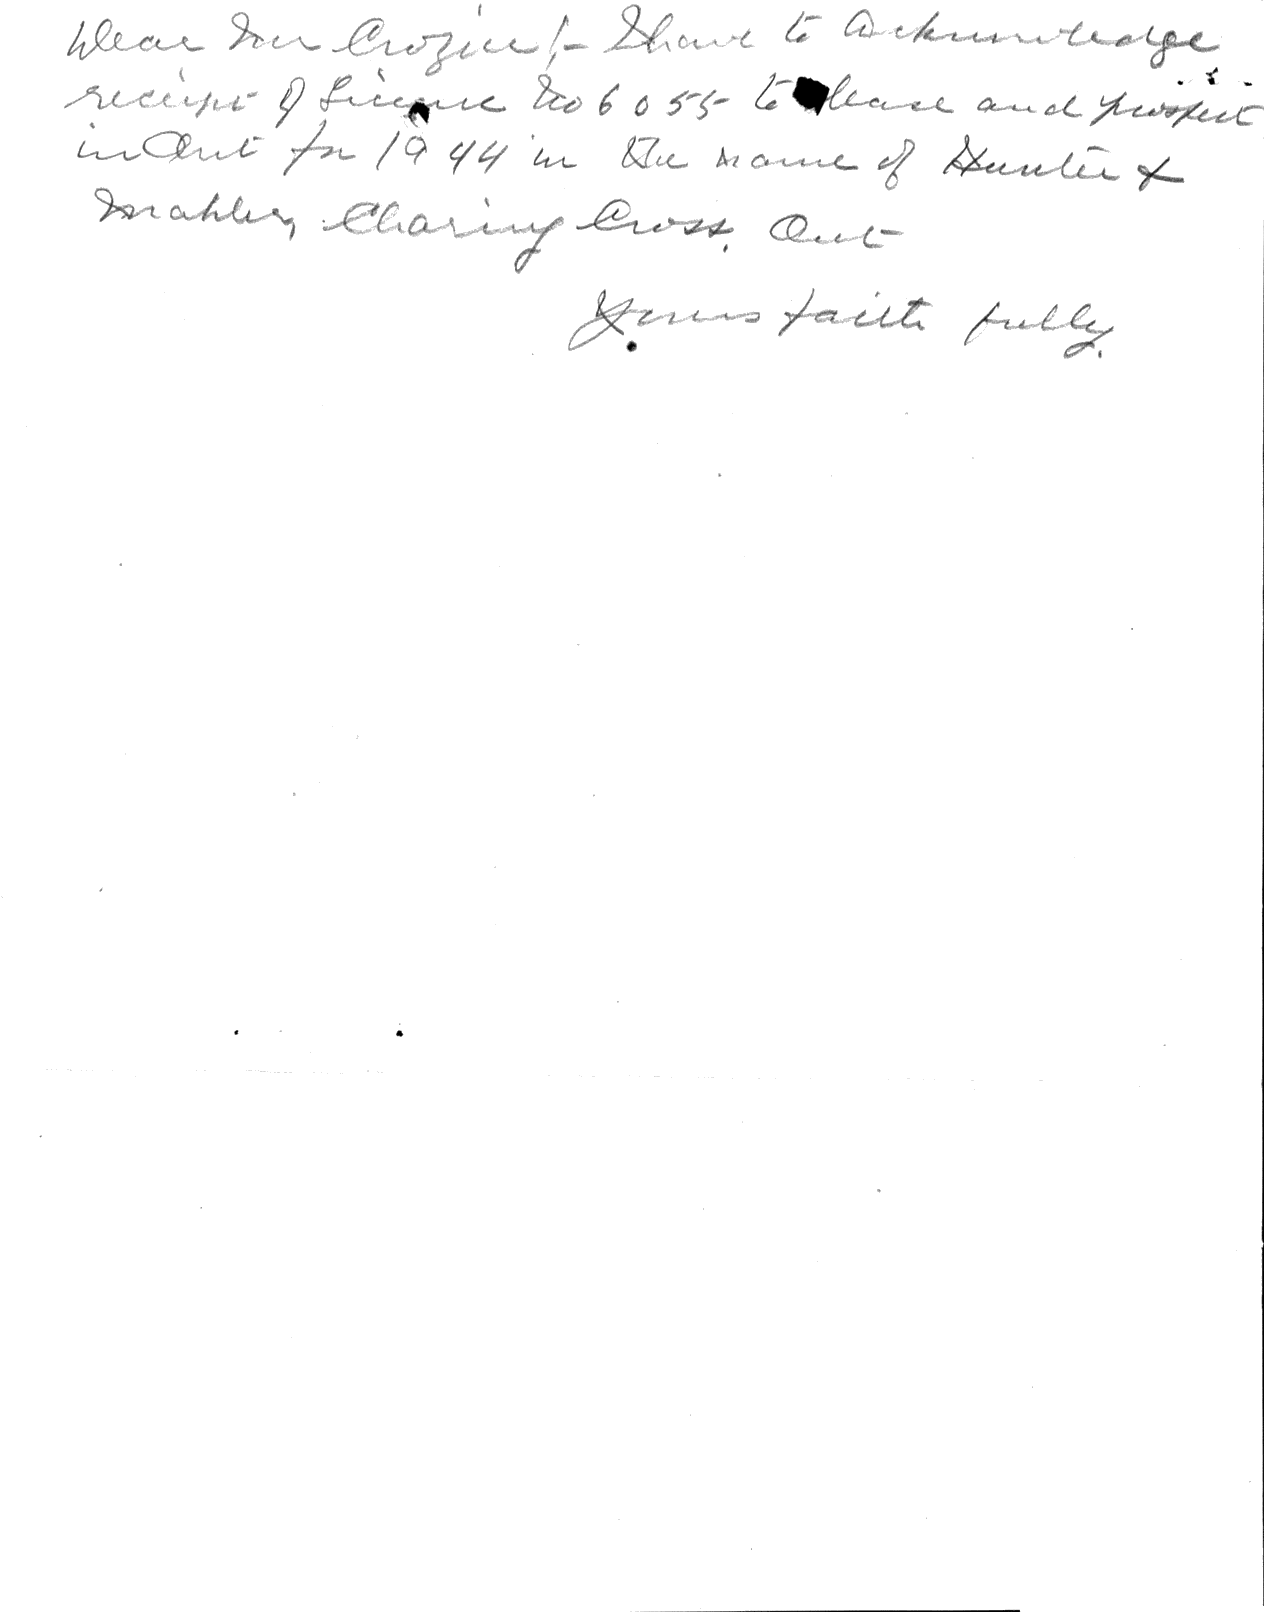 Dear Mr Crozier!- I have to acknowledge
receipt of License No 6055 to lease and prospect
in Ont for 1944 in the name of Hunter &
Mahler, Charing Cross, Ont
Yours faithfully.